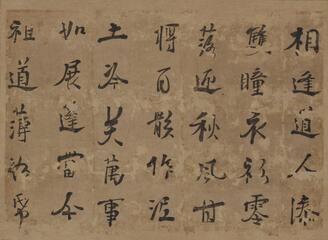 相逢道人漆
雙瞳衣衫零
落迎秋風甘
將百骸作泥
土冷笑萬事
如蓬當今
祖道薄帋